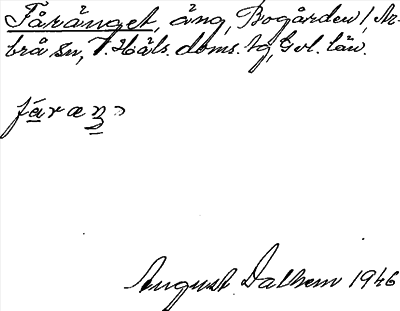 Fåränget, äng, Bogården 1, Ar-
brå sn, V. Häls. doms. tg, Gvl. län.
August Dalhem 1946